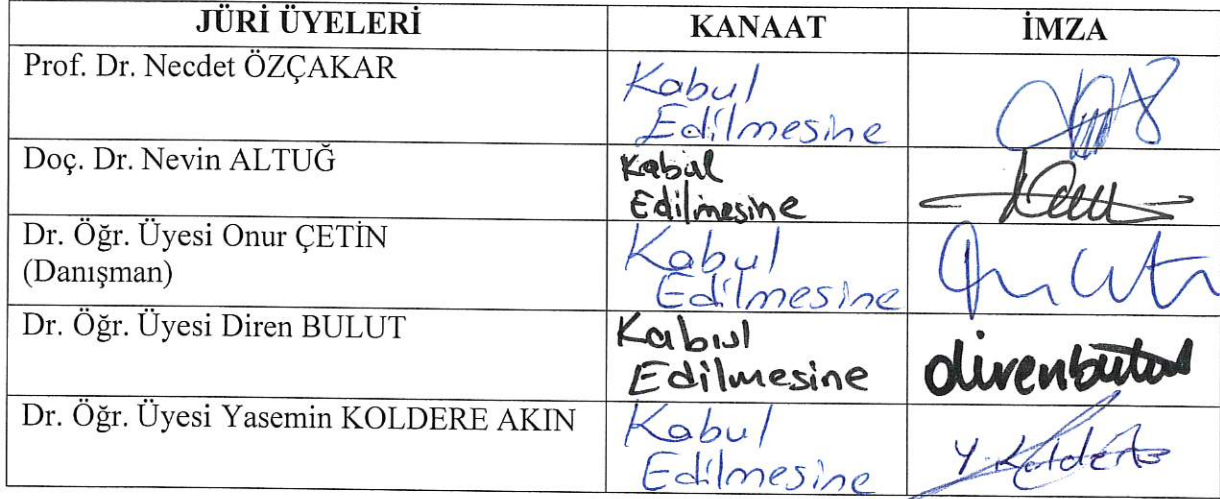 JÜRİ ÜYELERİ KANAAT İMZA
Prof. Dr. Necdet ÖZÇAKAR Kabul
Edilmesine
Doç. Dr. Nevin ALTUĞ Kabul
Edilmesine
Dr. Öğr. Üyesi Onur ÇETİN Kabul
(Danışman) Edilmesine
Dr. Öğr. Üyesi Diren BULUT Kabul
Edilmesine direnbulut
Dr. Öğr. Üyesi Yasemin KOLDERE AKIN Kabul
Edilmesine Y. Koldere